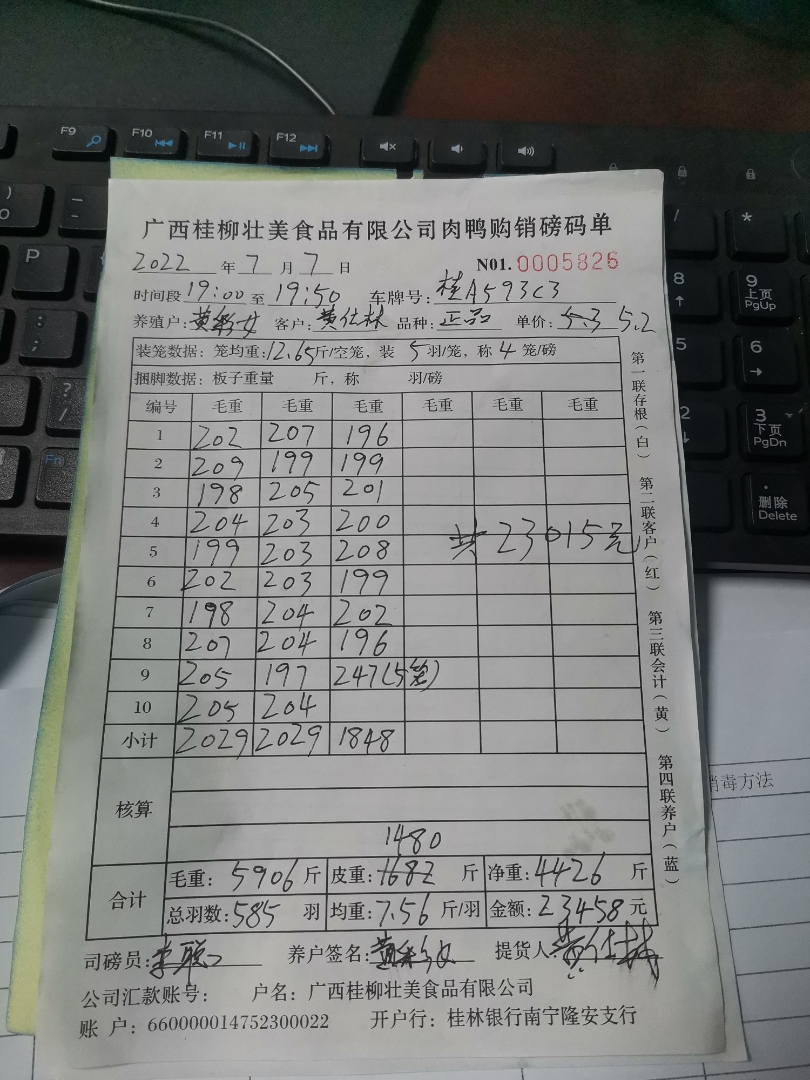 广西桂柳壮美食品有限公司肉鸭购销磅码单
2022 年 7 月 7 日 N01. 0005826
时间段 19:00 至 19:50 车牌号: 桂A593C3
养殖户: 黄彩女 客户: 黄仕林 品种: 正品 单价: 5.3 5.2
装笼数据: 笼均重: 12.65 斤/空笼, 装 5 羽/笼, 称 4 笼/磅
捆脚数据: 板子重量 斤, 称 羽/磅
编号 毛重 毛重 毛重 毛重 毛重 毛重
1 202 207 196
2 209 199 199
3 198 205 201
4 204 203 200
共23015元
5 199 203 208
6 202 203 199
7 198 204 202
8 207 204 196
9 205 197 247(5笼)
10 205 204
小计 2029 2029 1848
核算
1480
合计
毛重: 5906 斤 皮重: 1682 斤 净重: 4426 斤
总羽数: 585 羽 均重: 7.56 斤/羽 金额: 23458 元
司磅员: 养户签名: 黄彩女 提货人 黄仕林
公司汇款账号: 户名: 广西桂柳壮美食品有限公司
账 户: 660000014752300022 开户行: 桂林银行南宁隆安支行
第一联存根(白) 第二联客户(红) 第三联会计(黄) 第四联养户(蓝)
消毒方法
F9
F10
F11
F12
P
Fn
/
*
8
9
上页
PgUp
5
6
2
3
下页
PgDn
删除
Delete